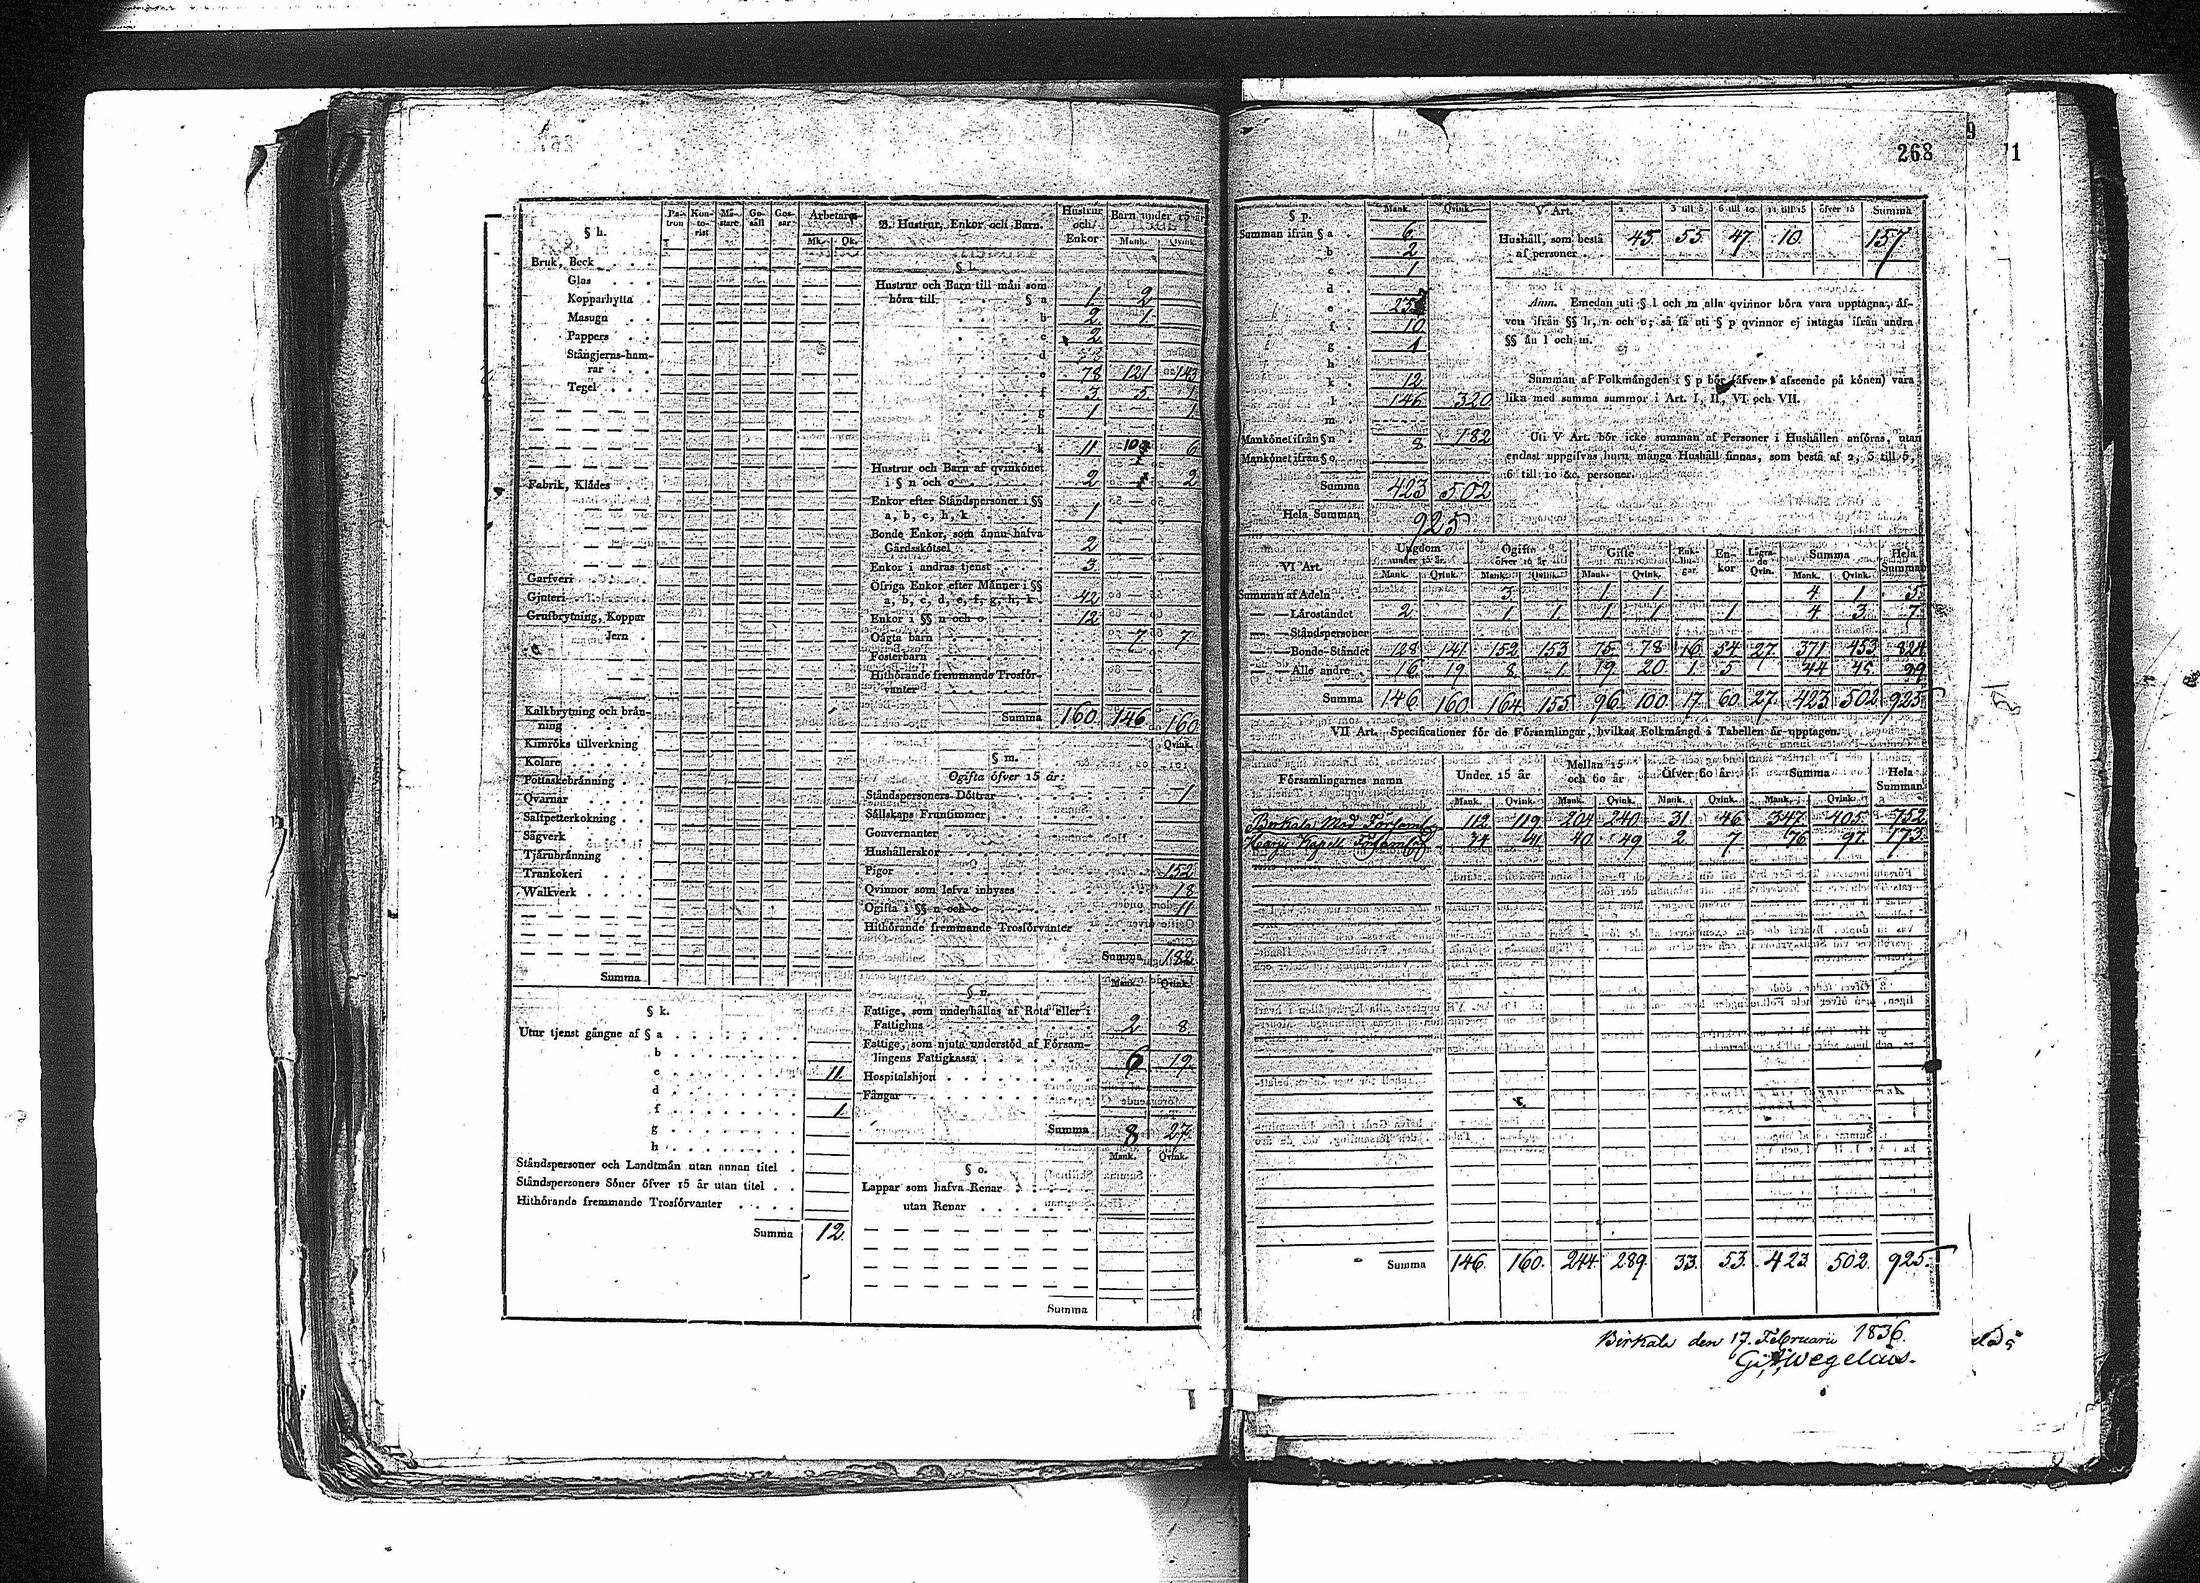 268
9
71
§ h.
Pa- tron Kon- to- rist Mä- stare Ge- säll Gos- sar Arbetare
Mk. Qk.
Bruk, Beck
Glas
Kopparhytta
Masugn
Pappers
Stångjerns-ham-
rar
Tegel
Fabrik, Klädes
Garfveri
Gjuteri
Grufbrytning, Koppar
Jern
Kalkbrytning och brän-
ning
Kimröks tillverkning
Kolare
Pottaskebränning
Qvarnar
Saltpetterkokning
Sågverk
Tjärubränning
Trankokeri
Walkverk
Summa
§ k.
Utur tjenst gångne af § a
b
c 11.
d
f 1.
g
h
Ståndspersoner och Landtmän utan annan titel
Ståndspersoners Söner öfver 15 år utan titel
Hithörande fremmande Trosförvanter
Summa 12.
B. Hustrur, Enkor och Barn. Hustrur och Enkor Barn under 15 år
Mank. Qvink.
§ l.
Hustrur och Barn till män som
höra till § a 1. 2
b 2 1.
c 2
d
e 78 121 143
f 3 5 1
g 1 1.
h
k 11 10 6
Hustrur och Barn af qvinkönet
i § n och o 2 2
Enkor efter Ståndspersoner i §§
a, b, c, h, k 1
Bonde Enkor, som ännu hafva
Gårdsskötsel 2
Enkor i andras tjenst 3
Öfriga Enkor efter Männer i §§
a, b, c, d, e, f, g, h, k 42
Enkor i §§ n och o 12
Oägta barn 7 7
Fosterbarn
Hithörande fremmande Trosför-
vanter
Summa 160 146 160
Qvink.
§ m.
Ogifta öfver 15 år:
Ståndspersoners Döttrar 1
Sällskaps Fruntimmer
Gouvernanter
Hushållerskor
Pigor 152
Qvinnor som lefva inhyses 18
Ogifta i §§ n och o 11
Hithörande fremmande Trosförvanter
Summa 182
Mank. Qvink.
§ n.
Fattige, som underhållas af Rota eller i
Fattighus 2 8
Fattige, som njuta understöd af Försam-
lingens Fattigkassa 6 19.
Hospitalshjon
Fångar
Summa 8 27.
Mank. Qvink.
§ o.
Lappar som hafva Renar
utan Renar
Summa
§ p. Mank. Qvink.
Summan ifrån § a 6
b 2
c 1
d
e 235
f 10
g 1
h
k 12
l 146 320
m
Mankönet ifrån § n 8 182
Mankönet ifrån § o
Summa 423 502
Hela Summan 925
V Art. 2 3 till 5 6 till 10 11 till 15 öfver 15 Summa
Hushåll, som bestå
af personer 45. 55. 47. 10. 157
Anm. Emedan uti § l och m alla qvinnor böra vara upptagna, äf-
ven ifrån §§ h, n och o, så få uti § p qvinnor ej intagas ifrån andra
§§ än l och m.
Summan af Folkmängden i § p bör (äfven i afseende på könen) vara
lika med samma summor i Art. I, II, VI och VII.
Uti V Art. bör icke summan af Personer i Hushållen anföras, utan
endast uppgifvas huru många Hushåll finnas, som bestå af 2, 3 till 5,
6 till 10 &c. personer.
VI Art. Ungdom under 15 år. Ogifte öfver 15 år Gifte Enk- lin- gar. En- kor Lägra- de Qvin. Summa Hela Summan
Mank. Qvink. Mank. Qvink. Mank. Qvink. Mank. Qvink.
Summan af Adeln 3 1 1 4 1 5
— — Läroståndet 2 1 1. 1 1 1 4 3 7
— — Ståndspersoner
— — Bonde-Ståndet 128 141 152 153 75 78 16 54 27. 371 453 824
— — Alle andre 16 19 8 1. 19. 20 1. 5 44 45 89
Summa 146 160. 164. 155 96. 100. 17. 60. 27. 423 502 925
VII Art. Specificationer för de Församlingar, hvilkas Folkmängd i Tabellen är upptagen.
Församlingarnes namn Under 15 år Mellan 15 och 60 år Öfver 60 år Summa Hela Summan
Mank. Qvink. Mank. Qvink. Mank. Qvink. Mank. Qvink.
Birkala Mod. Församl. 112 119 204 240. 31 46 347 405. 752
Harju Kapell Församling 34 41 40 49 2. 7. 76 97. 173.
Summa 146. 160. 244. 289. 33. 53. 423 502. 925.
Birkala den 17. Februarii 1836.
G. A. Wegelius.